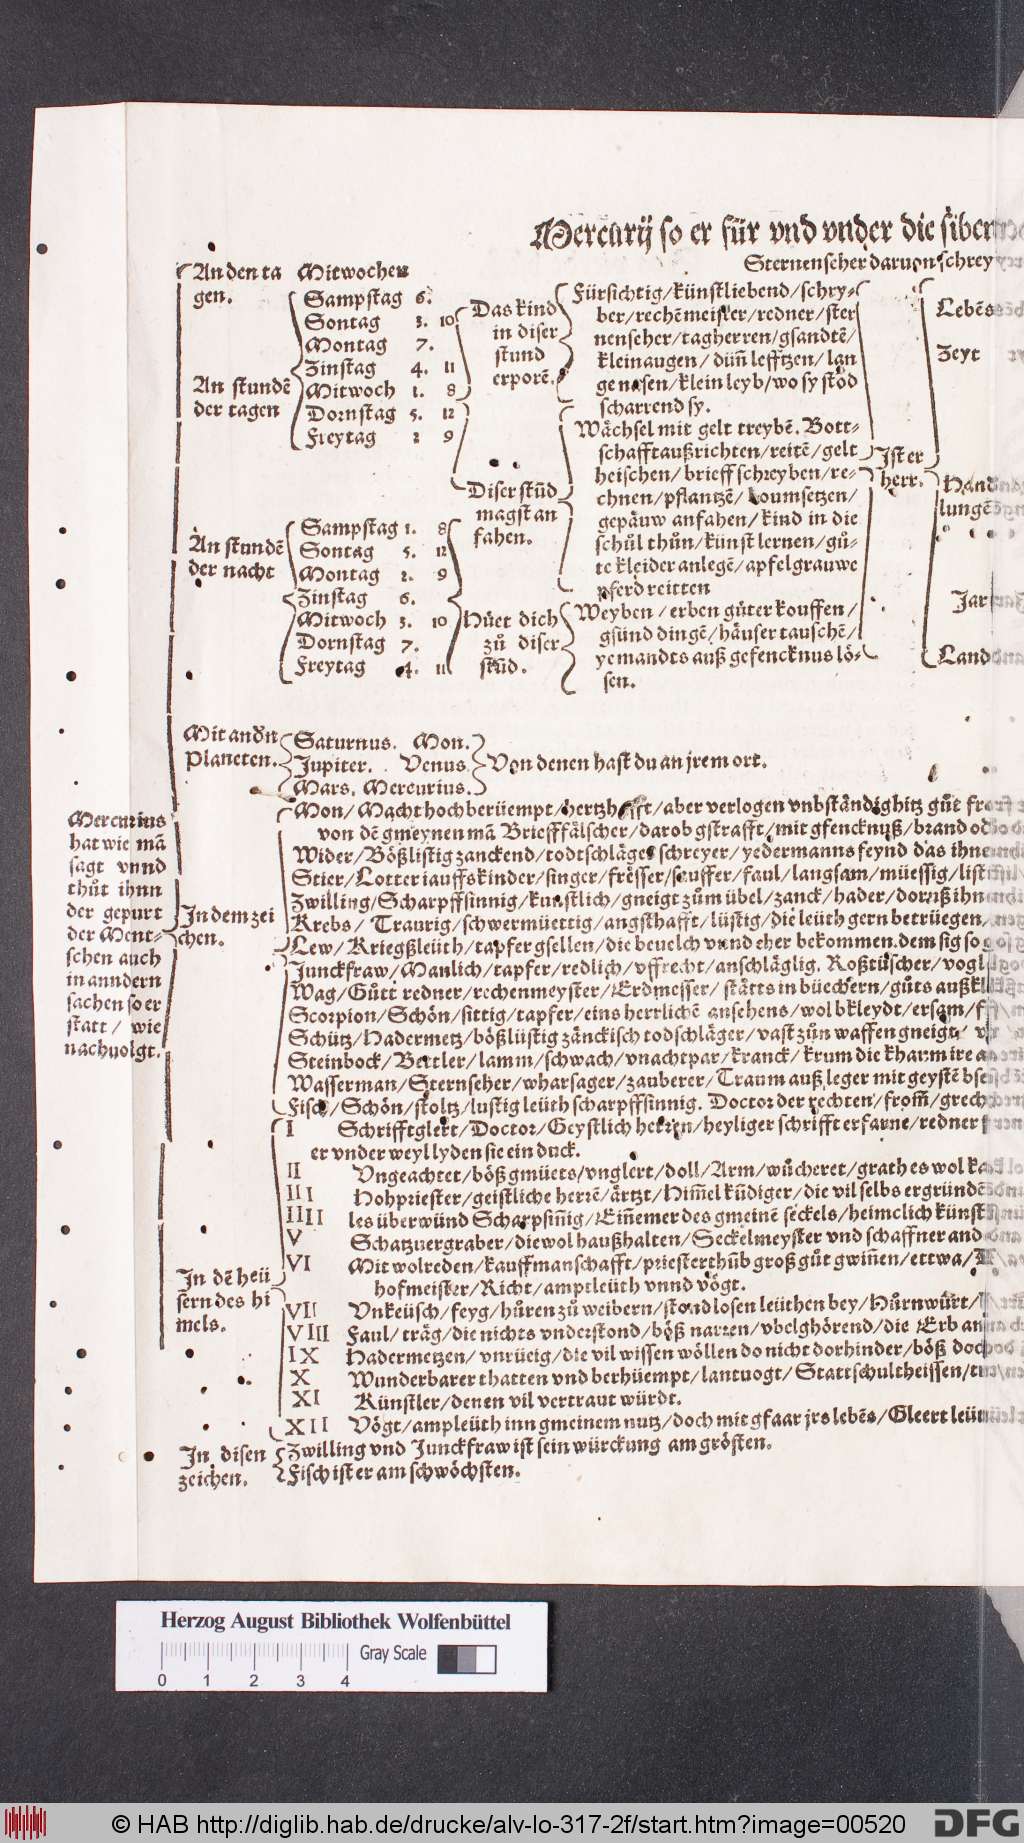 Mercurÿ so er für vnd vnder die siben
Sternenseher daruon schrey
An den ta
gen.
Mitwochen
An stundē
der tagen
Sampstag 6.
Sontag 3. 10
Montag 7.
Zinstag 4. 11
Mitwoch 1. 8
Dornstag 5. 12
Freytag 2 9
Das kind
in diser
stund
erporē.
Fürsichtig/künstliebend/schry-
ber/rechēmeister/redner/ster
nenseher/tagherren/gsandtē/
kleinaugen/dün̄ lefftzen/lan
ge nasen/klein leyb/wo sy stōd
scharrend sy.
Diser stūd
magst an
fahen.
Wächsel mit gelt treybē. Bott-
schafft außrichten/reitē/gelt
heischen/brieff schreyben/re-
chnen/pflantzē/boumsetzen/
gepäuw anfahen/kind in die
schůl thůn/künst lernen/gů-
te kleider anlegē/apfelgrauwe
pferd reitten
An stundē
der nacht
Sampstag 1. 8
Sontag 5. 12
Montag 2. 9
Zinstag 6.
Mitwoch 3. 10
Dornstag 7.
Freytag 4. 11
Hüet dich
zů diser
stūd.
Weyben/erben gůter kouffen/
gsünd dingē/häuser tauschē/
yemandts auß gefencknus lö-
sen.
Ist er
herr.
Lebēs
Zeyt
Hand
lungē
Jar
Land
Mit andn
Planeten.
Saturnus. Mon.
Jupiter. Venus.
Mars. Mercurius.
Von denen hast du an jrem ort.
Mercurius
hat wie mā
sagt vnnd
thůt ihnn
der gepurt
der Ment-
schen auch
in anndern
sachen so er
statt/ wie
nachuolgt.
In dem zei
chen.
Mon/Macht hochberüempt/hertzhafft/aber verlogen vnbständig hitz gůt
von dē gmeynen mā Briefffälscher/darob gstrafft/mit gfencknuß/brand
Wider/Bößlistig zanckend/todtschläger schreyer/yedermanns feynd das
Stier/Lotter iauffskinder/singer/frësser/seuffer/faul/langsam/müessig/
Zwilling/Scharpffsinnig/kunstlich/gneigt zům übel/zanck/hader/
Krebs/Traurig/schwermüettig/angsthafft/lüstig/die leüth gern betrüegen.
Lew/Kriegßleüth/tapfer gsellen/die beuelch vnnd eher bekommen. dem sig so
Junckfraw/Manlich/tapfer/redlich/vffrecht/anschläglig. Roßtüscher/
Wag/Gůtt redner/rechenmeyster/Erdmesser/stätts in büechern/gůts
Scorpion/Schön/sittig/tapfer/eins herrlichē ansehens/wol bkleydt/ersam/
Schütz/Hadermetz/bößlüstig zänckisch todschläger/vast zůn waffen gneigt
Steinbock/Bettler/lamm/schwach/vnachtpar/kranck/krum die kharm ire
Wasserman/Sternseher/wharsager/zauberer/Traum auß leger mit geystē
Fisch/Schön/stoltz/lustig leüth scharpffsinnig. Doctor der rechten/from̄/
In dē heü
sern des hi
mels.
I Schrifftglert/Doctor/Geystlich herren/heyliger schrifft erfarne/redner
er vnder weyl lyden sie ein duck.
II Vngeachtet/böß gmüets/vnglert/doll/Arm/wůcheret/grath es wol
III Hohpriester/geistliche herrē/ärtzt/Him̄el kūdiger/die vil selbs ergründē
IIII les überwünd Scharpsin̄ig/Ein̄emer des gmeinē seckels/heimclich
V Schatzuergraber/die wol haußhalten/Seckelmeyster vnd schaffner
VI Mit wolreden/kauffmanschafft/priesterthūb groß gůt gwin̄en/ettwa/
hofmeister/Richt/amptleüth vnnd vögt.
VII Vnkeüsch/feyg/hůren zů weibern/stond losen leüthen bey/Hůrnwürt/
VIII Faul/träg/die nichts vnderstond/böß narren/vbelghörend/die Erb
IX Hadermetzen/vnrüeig/die vil wissen wöllen do nicht dorhinder/böß
X Wunderbarer thatten vnd berhüempt/lantuogt/Stattschultheissen/
XI Künstler/denen vil vertraut würdt.
XII Vögt/ampleüth inn gmeinem nutz/doch mit gfaar jrs lebēs/Gleert
In disen
zeichen.
Zwilling vnd Junckfraw ist sein würckung am grösten.
Fisch ist er am schwöchsten.
Herzog August Bibliothek Wolfenbüttel
Gray Scale
0 1 2 3 4
© HAB http://diglib.hab.de/drucke/alv-lo-317-2f/start.htm?image=00520
DFG